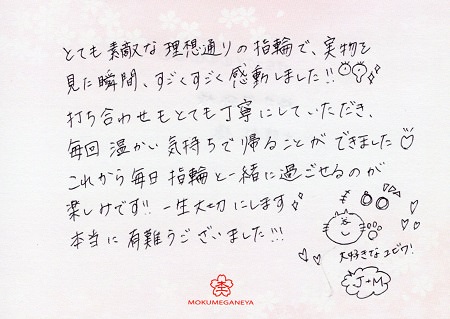 とても素敵な理想通りの指輪で、実物を
見た瞬間、すごくすごく感動しました!!
打ち合わせもとても丁寧にしていただき、
毎回温かい気持ちで帰ることができました♡
これから毎日指輪と一緒に過ごせるのが
楽しみです!! 一生大切にします
本当に有難うございました!!!
大好きなユビワ!
J+M
杢
MOKUMEGANEYA